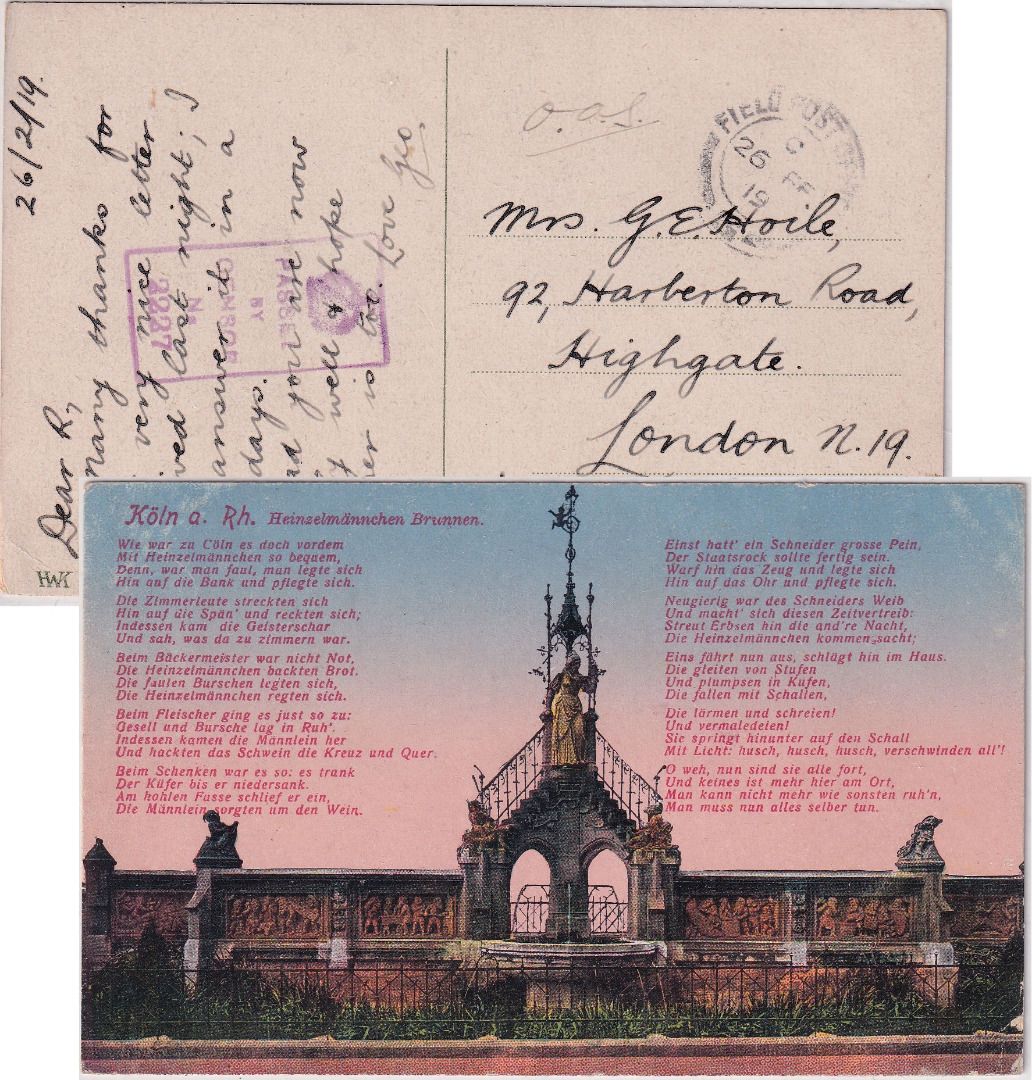 26/2/19.
Dear R,
many thanks for
very nice letter
ved last night; I
answer it in a
days.
d you are now
well & hope
er is too.
Love Geo.
PASSED
BY
CENSOR
No.
O.A.S.
FIELD POST OFFICE
C
26 FE
19
Mrs. G.E. Hoile,
92, Harberton Road,
Highgate.
London N.19.
HWK
Köln a. Rh. Heinzelmännchen Brunnen.
Wie war zu Cöln es doch vordem
Mit Heinzelmännchen so bequem,
Denn, war man faul, man legte sich
Hin auf die Bank und pflegte sich.
Die Zimmerleute streckten sich
Hin auf die Spän' und reckten sich;
Indessen kam die Geisterschar
Und sah, was da zu zimmern war.
Beim Bäckermeister war nicht Not,
Die Heinzelmännchen backten Brot.
Die faulen Burschen legten sich,
Die Heinzelmännchen regten sich.
Beim Fleischer ging es just so zu:
Gesell und Bursche lag in Ruh'.
Indessen kamen die Männlein her
Und hackten das Schwein die Kreuz und Quer.
Beim Schenken war es so: es trank
Der Küfer bis er niedersank.
Am hohlen Fasse schlief er ein,
Die Männlein sorgten um den Wein.
Einst hatt' ein Schneider grosse Pein,
Der Staatsrock sollte fertig sein.
Warf hin das Zeug und legte sich
Hin auf das Ohr und pflegte sich.
Neugierig war des Schneiders Weib
Und macht' sich diesen Zeitvertreib:
Streut Erbsen hin die and're Nacht,
Die Heinzelmännchen kommen sacht;
Eins fährt nun aus, schlägt hin im Haus.
Die gleiten von Stufen
Und plumpsen in Kufen,
Die fallen mit Schallen,
Die lärmen und schreien!
Und vermaledeien!
Sie springt hinunter auf den Schall
Mit Licht: husch, husch, husch, verschwinden all'!
O weh, nun sind sie alle fort,
Und keines ist mehr hier am Ort,
Man kann nicht mehr wie sonsten ruh'n,
Man muss nun alles selber tun.